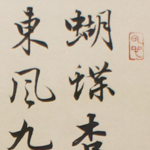 蝴蝶杏
東風九